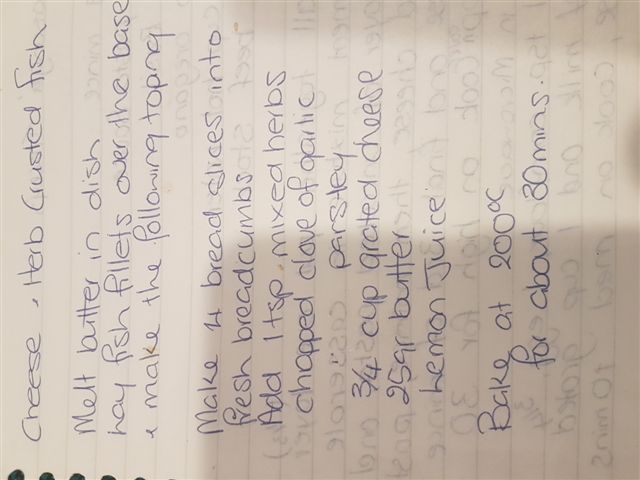 Cheese & Herb Crusted fish
Melt butter in dish
Lay fish fillets over the base
& make the following toping
Make 4 bread slices into
fresh breadcumbs
Add 1tsp mixed herbs
chopped clove of garlic
parsley
3/4 cup grated cheese
25gr butter
Lemon Juice
Bake at 200°c
for about 30mins.